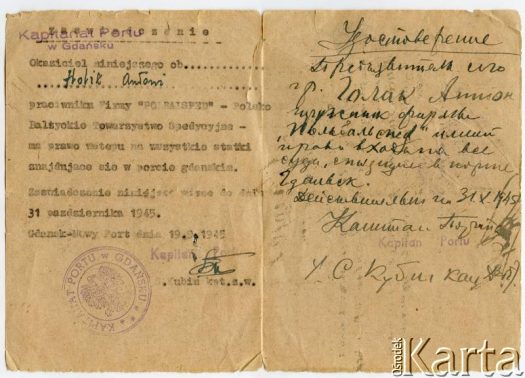 Zaświadczenie
Kapitanat Portu
w Gdańsku
Okaziciel niniejszego ob.
Antoni
pracownika Firmy "POLBALSPED" - Polsko
Bałtyckie Towarzystwo Spedycyjne -
ma prawo wstępu na wszystkie statki
znajdujące się w porcie gdańskim.
Zaświadczenie niniejsze ważne do dnia
31 października 1945.
Gdańsk-Nowy Port dnia 19.9.1945
Kapitan Portu
S.Kubin kpt.ż.w.
KAPITANAT PORTU w GDAŃSKU
Удостоверение
Предъявитель сего
гр. Голак Антон
фирмы
"Польбальспед" имеет
право входа на все
суда, в порте
Гданьск.
Действительно 31.X.1945
Капитан Порта
Kapitan Portu
Ośrodek
Karta